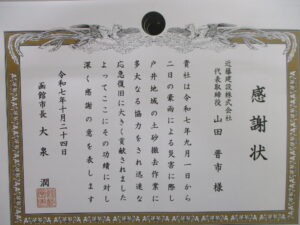 感謝状
近藤建設株式会社
代表取締役 山田晋市様
貴社は令和七年九月一日から
二日の豪雨による災害に際し
戸井地域の土砂撤去作業に
多大なる協力をされ迅速な
応急復旧に大きく貢献されました
よってここにその功績に対し
深く感謝の意を表します
令和七年十月二十四日
函館市長 大泉潤